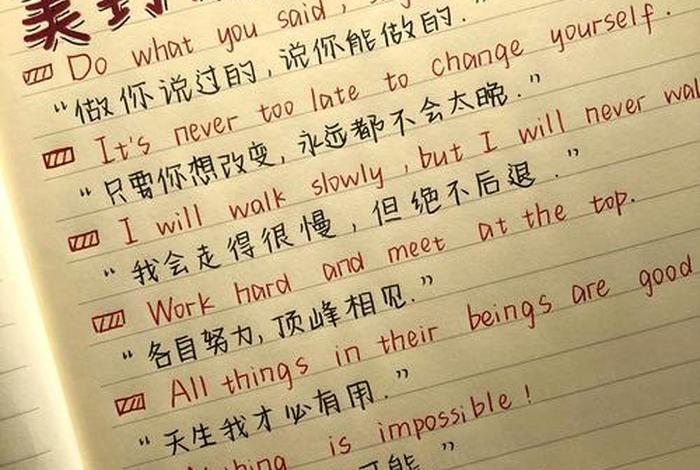 美
Do what you said,
“做你说过的，说你能做的.”
It's never too late to change yourself.
“只要你想改变，永远都不会太晚.”
I will walk slowly, but I will never
“我会走得很慢，但绝不后退.”
Work hard and meet at the top.
“各自努力，顶峰相见.”
All things in their beings are good
“天生我才必有用.”
is impossible!
可能.”